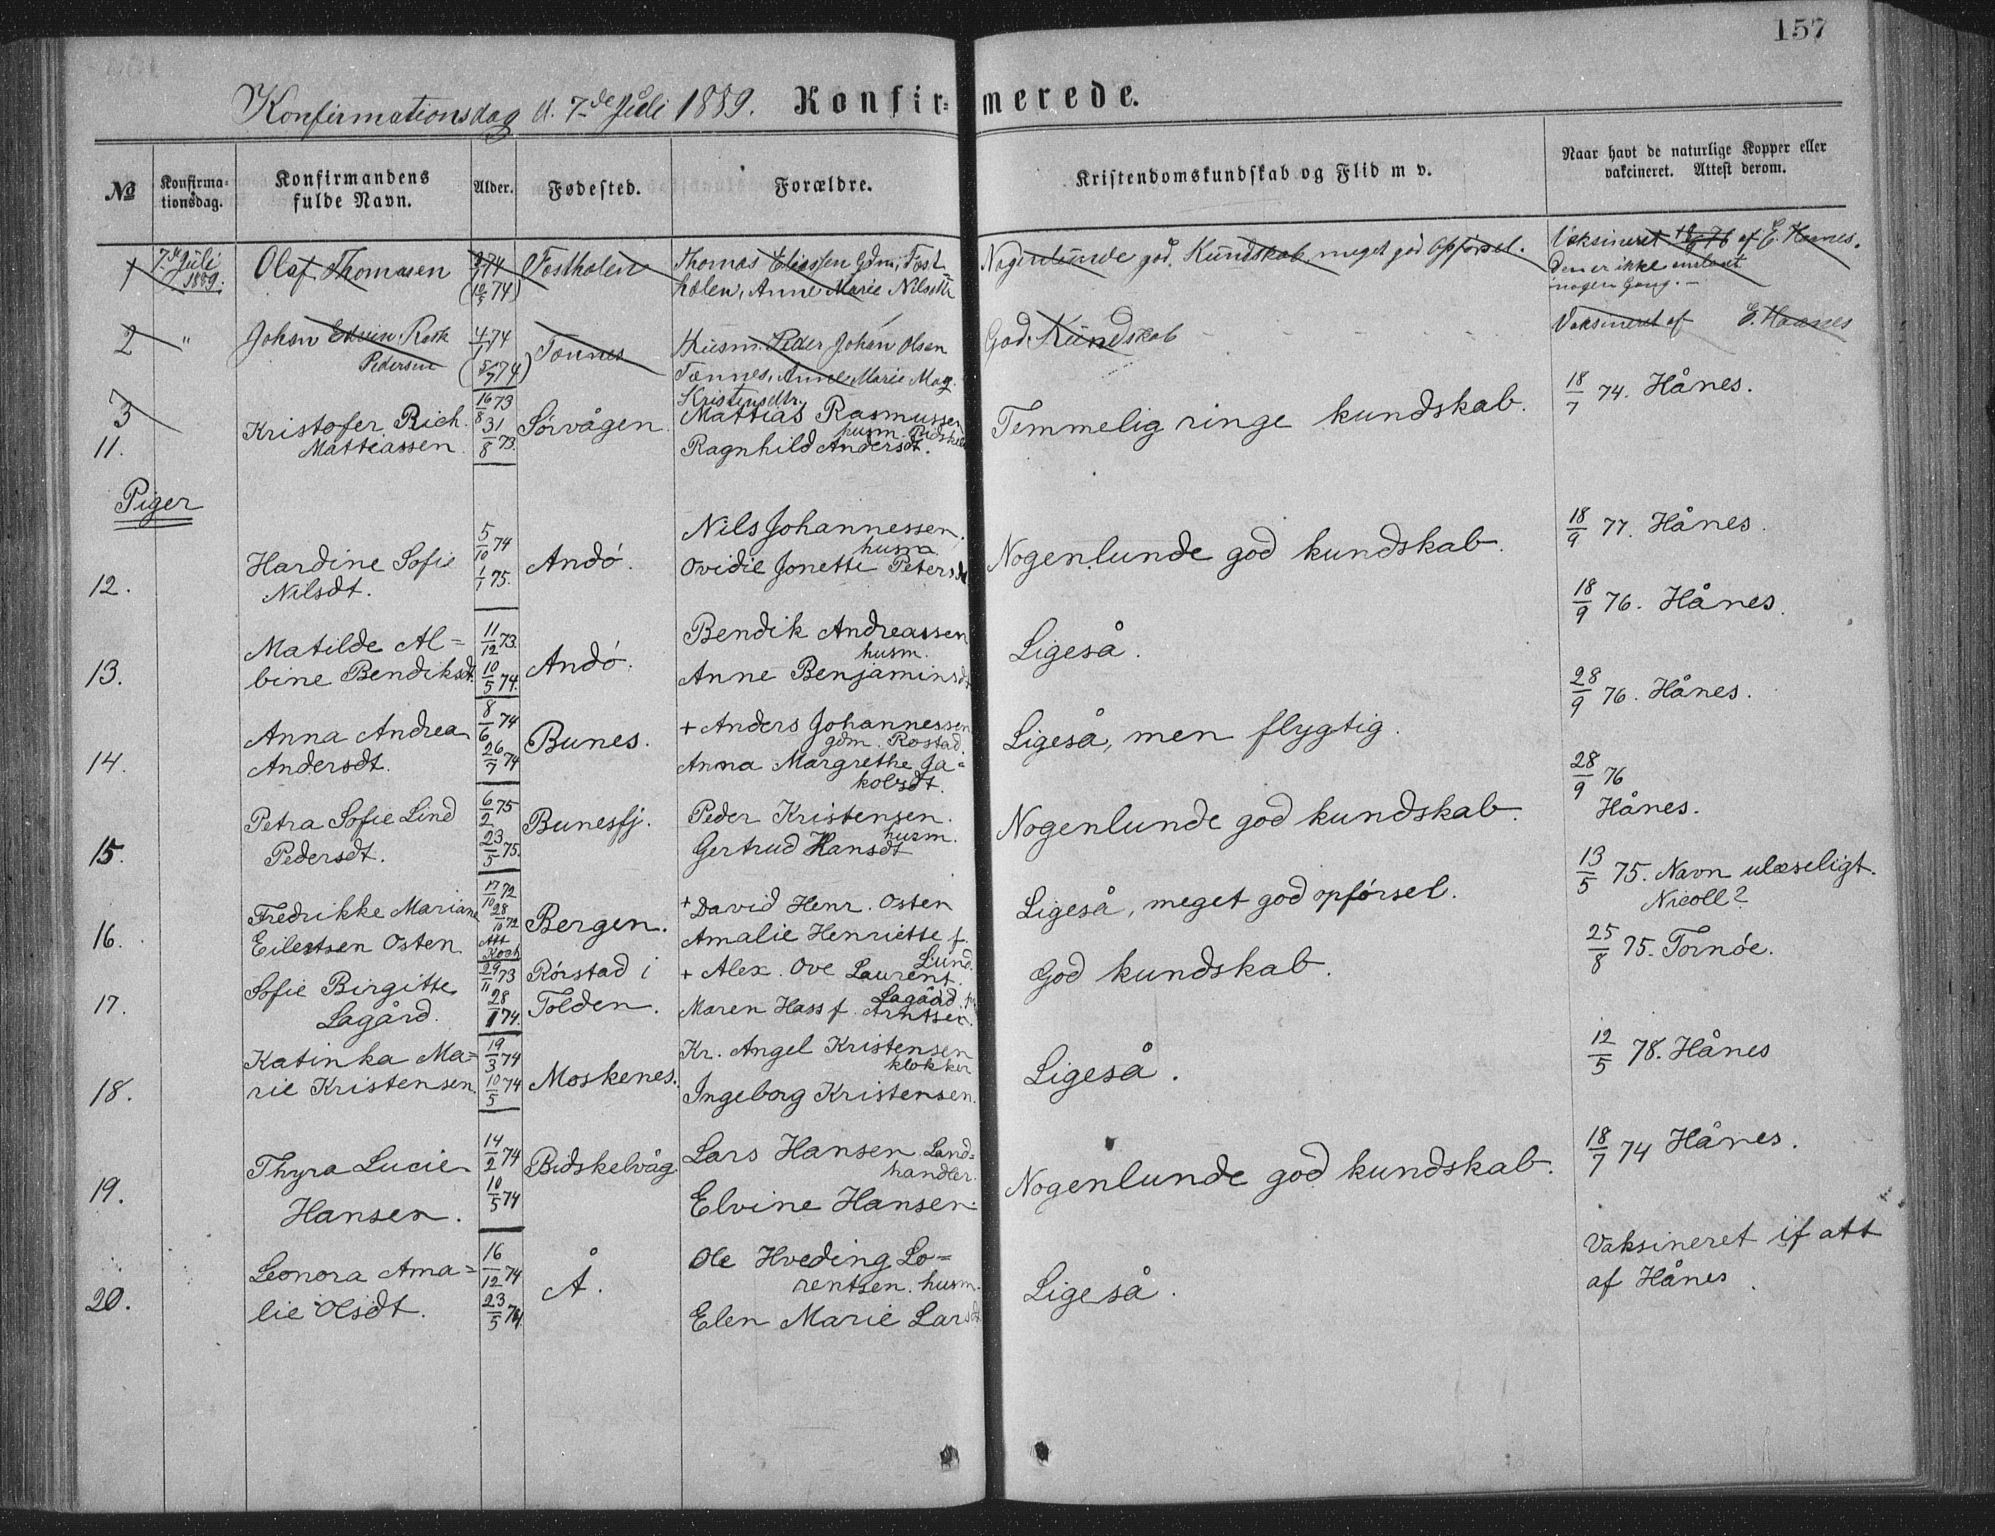 157
Konfirmationsdag d. 7de Juli 1889. Konfirmerede.
№ Konfirmationsdag. Konfirmandens fulde Navn. Alder. Fødested. Forældre. Kristendomskundskab og Flid m v. Naar havt de naturlige Kopper eller vakcineret. Attest derom.
1 7de Juli 1889. Olaf Thomasen 74 (10/5 74) Fostholen Thomas Eliassen Gdm, Fostholen, Anne Marie Nilsdtr Nogenlunde god Kundskab, meget god Opførsel. Vaksineret 76 af E. Haanes.
den er ikke
nogen Gang.
2 " Johan Edvin Rask Pedersen 4/1 74 (5/7 74) Tønnes Husm. Peder Johan Olsen
Tønnes, Anne Marie Mag.
Kristensdtr.
God Kundskab Vaksineret af E. Haanes
3
11. Kristofer Rich.
Mattiassen
16/8 73
31/8 73.
Sörvågen.
Mattias Rasmussen
husm.
Ragnhild Andersdt.
Temmelig ringe kundskab.
18/7 74. Hånes.
Piger
12. Hardine Sofie
Nilsdt.
5/10 74
1/1 75.
Andö.
Nils Johannessen.
husm
Ovidie Jonette Petersdt
Nogenlunde god kundskab.
18/9 77. Hånes.
13. Matilde Al=
bine Bendiksdt.
11/12 73.
10/5 74.
Andö.
Bendik Andreassen
husm.
Anne Benjaminsdt
Ligeså.
18/9 76. Hånes.
14. Anna Andrea
Andersdt.
8/6 74
26/7 74
Bunes.
+ Anders Johannessen
gdm. Rostad.
Anna Margrethe Ja=
kobsdt.
Ligeså, men flygtig.
28/9 76. Hånes.
15. Petra Sofie Lind
Pedersdt.
6/2 75
23/5 75.
Bunesfj.
Peder Kristensen.
husm.
Gertrud Hansdt
Nogenlunde god kundskab.
28/9 76
Hånes.
16. Fredrikke Mariane
Eilertsen Osten.
17/10 72
28/10 72
Att
Koch
Bergen.
+ David Henr. Osten
Amalie Henriette f.
Lund.
Ligeså, meget god opförsel.
13/5 75. Navn ulæseligt.
Nicoll?
17. Sofie Birgitte
Lagård.
29/11 73
28/1 74.
Rörstad i
Folden.
+ Alex. Ove Laurent.
Lagård
Maren Hass f. Arntsen.
God kundskab.
25/8 75. Tornöe.
18. Katinka Ma=
rie Kristensen
19/3 74
10/5 74
Moskenes.
Kr. Angel Kristensen
klokker
Ingeborg Kristensen.
Ligeså.
12/5 78. Hånes
19. Thyra Lucie
Hansen.
14/2 74
10/5 74
Bidskelvåg
Lars Hansen Land=
handler.
Elvine Hansen.
Nogenlunde god kundskab.
18/7 74 Hånes.
20. Leonora Ama=
lie Olsdt.
16/12 74
23/5 74.
Å.
Ole Hveding Lo=
rentsen. husm.
Elen Marie Larsdt
Ligeså.
Vaksineret if att
af Hånes.